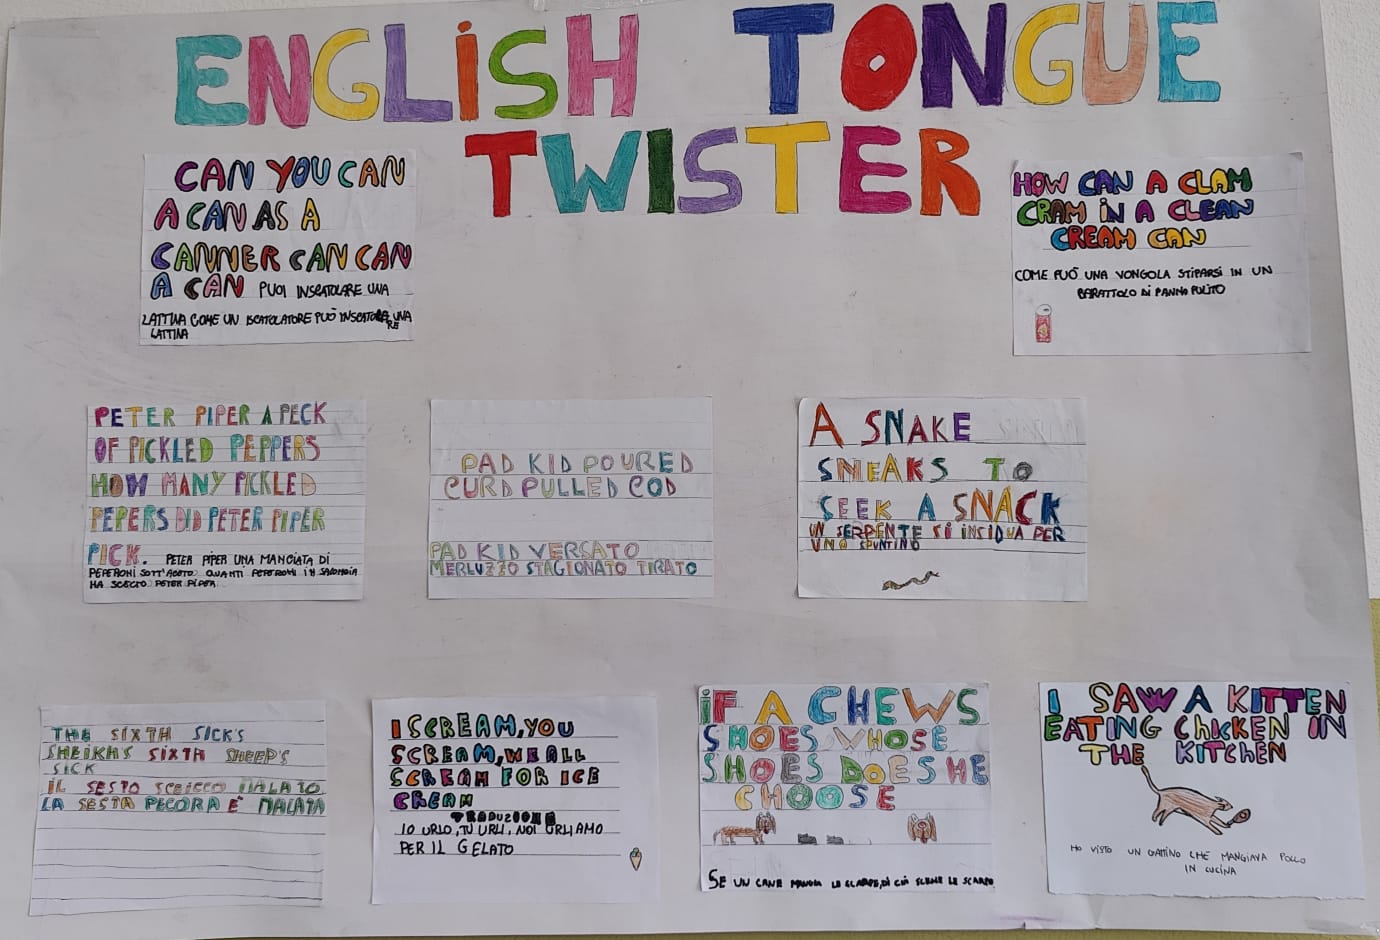 ENGLISH TONGUE
TWISTER
CAN YOU CAN
A CAN AS A
CANNER CAN CAN
A CAN PUOI INSCATOLARE UNA
LATTINA COME UN ISCATOLATORE PUÒ INSCATOLARE UNA
LATTINA
HOW CAN A CLAM
CRAM IN A CLEAN
CREAM CAN
COME PUÓ UNA VONGOLA STIPARSI IN UN
BARATTOLO DI PANNA PULITO
PETER PIPER A PECK
OF PICKLED PEPPERS
HOW MANY PICKLED
PEPERS DID PETER PIPER
PICK. PETER PIPER UNA MANCIATA DI
PEPERONI SOTT'ACETO. QUANTI PEPERONI IN SALAMOIA
HA SCELTO PETER PIPER
PAD KID POURED
CURD PULLED COD
PAD KID VERSATO
MERLUZZO STAGIONATO TIRATO
A SNAKE
SNEAKS TO
SEEK A SNACK
UN SERPENTE SI INSIDUA PER
UNO SPUNTINO
THE SIXTH SICK'S
SHEIKHS SIXTH SHEEP'S
SICK
IL SESTO SCEICCO MALATO
LA SESTA PECORA E' MALATA
I SCREAM, YOU
SCREAM, WE ALL
SCREAM FOR ICE
CREAM
TRADUZIONE
IO URLO, TU URLI, NOI URLIAMO
PER IL GELATO
IF A CHEWS
SHOES WHOSE
SHOES DOES HE
CHOOSE
SE UN CANE MANGIA LE SCARPE, DI CUI SCELNE LE SCARPE
I SAW A KITTEN
EATING CHICKEN IN
THE KITCHEN
HO VISTO UN GATTINO CHE MANGIAVA POLLO
IN CUCINA